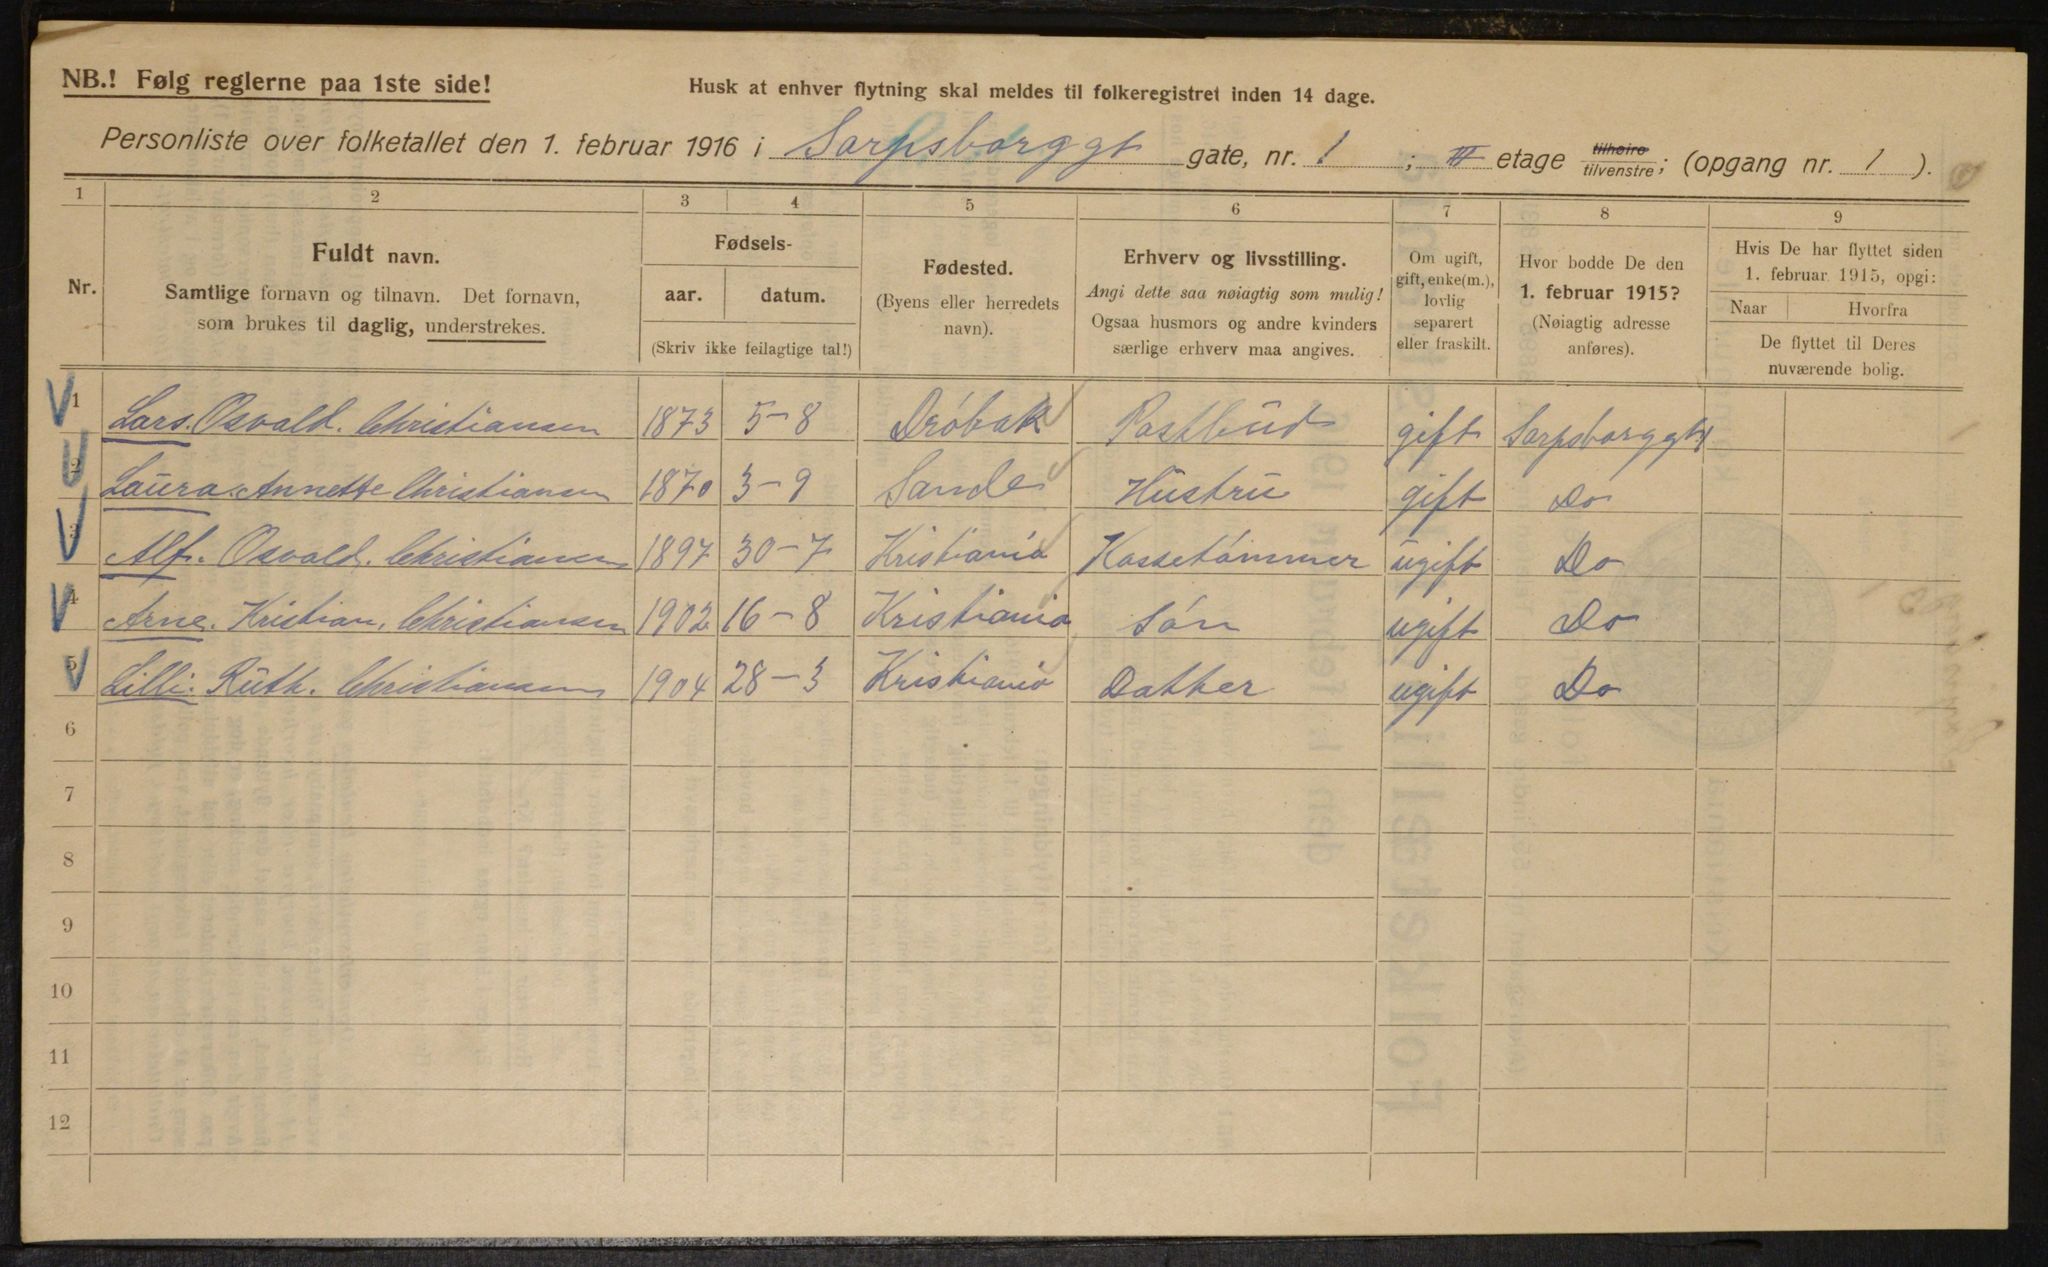 NB.! Følg reglerne paa 1ste side!
Husk at enhver flytning skal meldes til folkeregistret inden 14 dage.
Personliste over folketallet den 1. februar 1916 i Sarpsborggt gate, nr. 1 ; III etage tilhøire tilvenstre; (opgang nr. 1 ).
1 2 3 4 5 6 7 8 9
Nr.
Fuldt navn.
Samtlige fornavn og tilnavn. Det fornavn,
som brukes til daglig, understrekes.
Fødsels-
aar. datum.
(Skriv ikke feilagtige tal!)
Fødested.
(Byens eller herredets
navn).
Erhverv og livsstilling.
Angi dette saa nøiagtig som mulig!
Ogsaa husmors og andre kvinders
særlige erhverv maa angives.
Om ugift,
gift, enke(m.),
lovlig
separert
eller fraskilt.
Hvor bodde De den
1. februar 1915?
(Nøiagtig adresse
anføres).
Hvis De har flyttet siden
1. februar 1915, opgi:
Naar Hvorfra
De flyttet til Deres
nuværende bolig.
1 Lars. Osvald. Christiansen 1873 5-8 Drøbak Postbud gift Sarpsborggt 1
2 Laura. Annette Christiansen 1870 3-9 Sande Hustru gift Do
3 Alf. Osvald. Christiansen 1897 30-7 Kristiania Kassetømmer ugift Do
4 Arne. Kristian. Christiansen 1902 16-8 Kristiania Søn ugift Do
5 Lilli. Ruth. Christiansen 1904 28-3 Kristiania Datter ugift Do
6
7
8
9
10
11
12